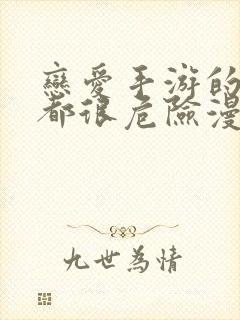 戀愛手游的
都很危險漫
九世為情